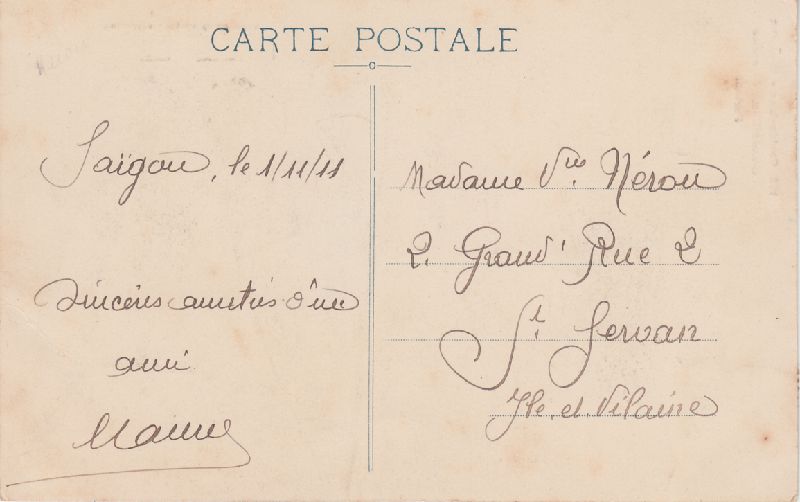 CARTE POSTALE
Saïgon, le 1/11/11
Sincères amitiés d'un
ami
Madame Vve Néron
2. Grand' Rue 2
St Servan
Ile et Vilaine